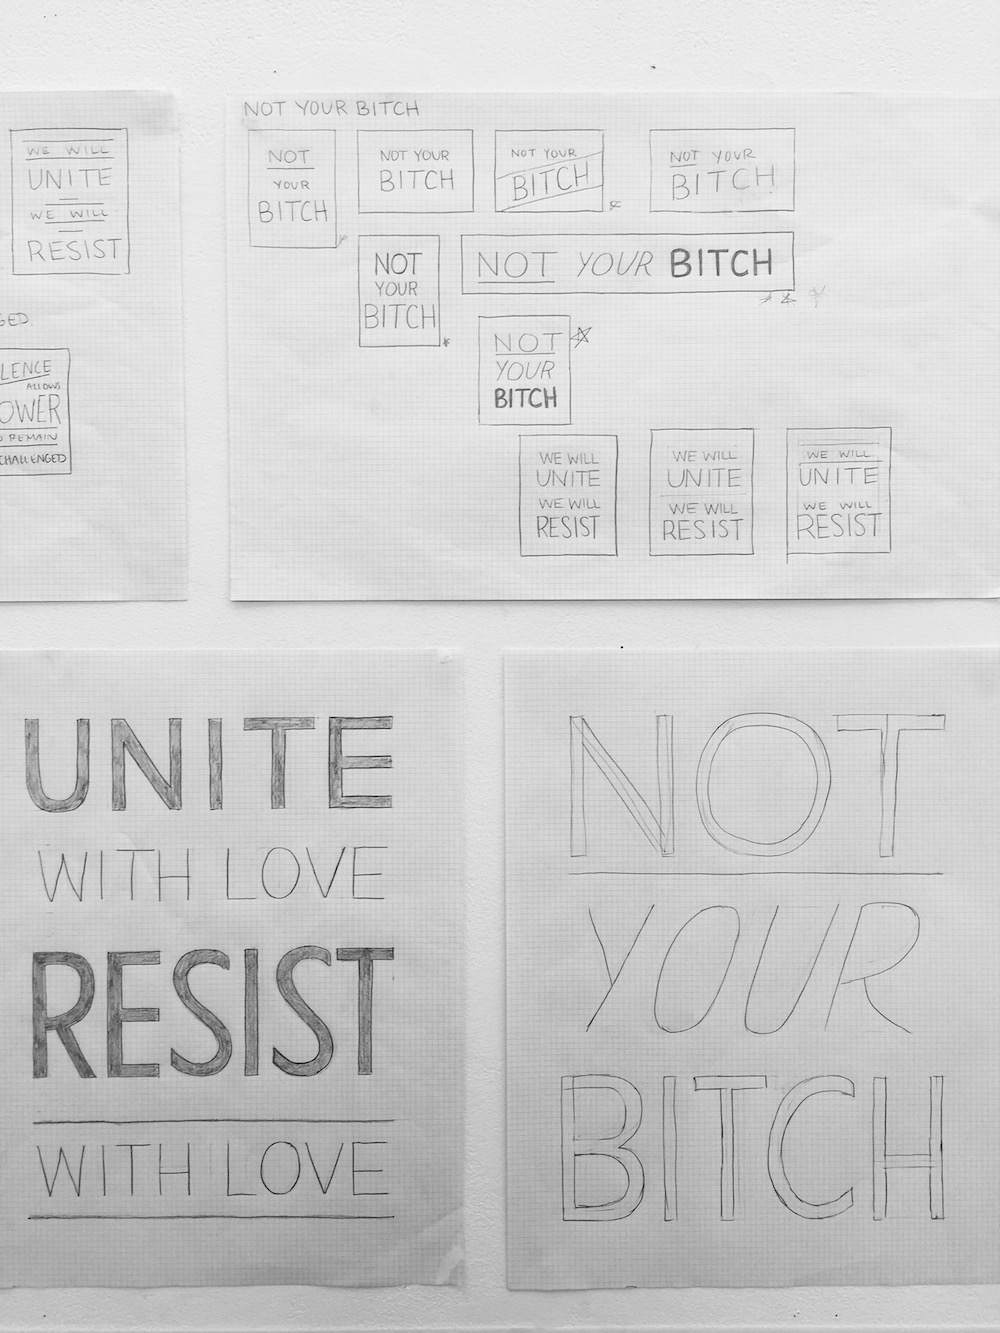 WE WILL
UNITE
WE WILL
RESIST
ALLOWS
REMAIN
NOT YOUR BITCH
NOT
YOUR
BITCH
NOT YOUR
BITCH
NOT YOUR
BITCH
NOT YOUR
BITCH
NOT
YOUR
BITCH
NOT YOUR BITCH
NOT
YOUR
BITCH
WE WILL
UNITE
WE WILL
RESIST
WE WILL
UNITE
WE WILL
RESIST
WE WILL
UNITE
WE WILL
RESIST
UNITE
WITH LOVE
RESIST
WITH LOVE
NOT
YOUR
BITCH